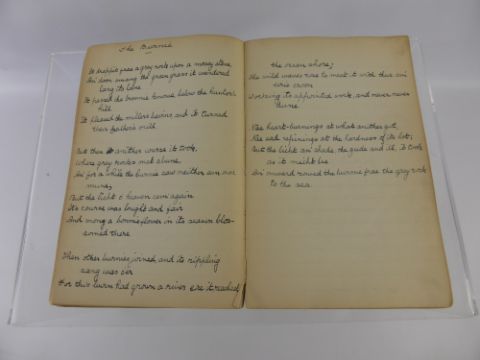 The Burnie
It drappit frae a grey rock upon a mossy stane,
An' doon amang the green grass it wandered
lang its lane.
It passed the broomie knowe below the hunter's
hill
It pleased the miller's bairns and it turned
their faither's mill.
But then anither course it took,
Where grey rocks met abune,
An' for a while the burnie saw neither sun nor
mune,
But the licht o' heaven cam' again
Its course was bright and fair
And mony a bonnie flower in its season blos-
somed there.
Then other burnies joined, and its rippling
sang was o'er
For this burn had grown a river ere it reached
the ocean shore;
The wild waves rose to meet it with their ain
eerie croon
Working its appointed work, and never never
dune.
Nae heart-burnings at what anither got,
Nae sad repinings at the hardness of its lot;
But the licht an' shade, the gude and ill, it took
as it micht be
An' onward rowed the burnie frae the grey rock
to the sea.